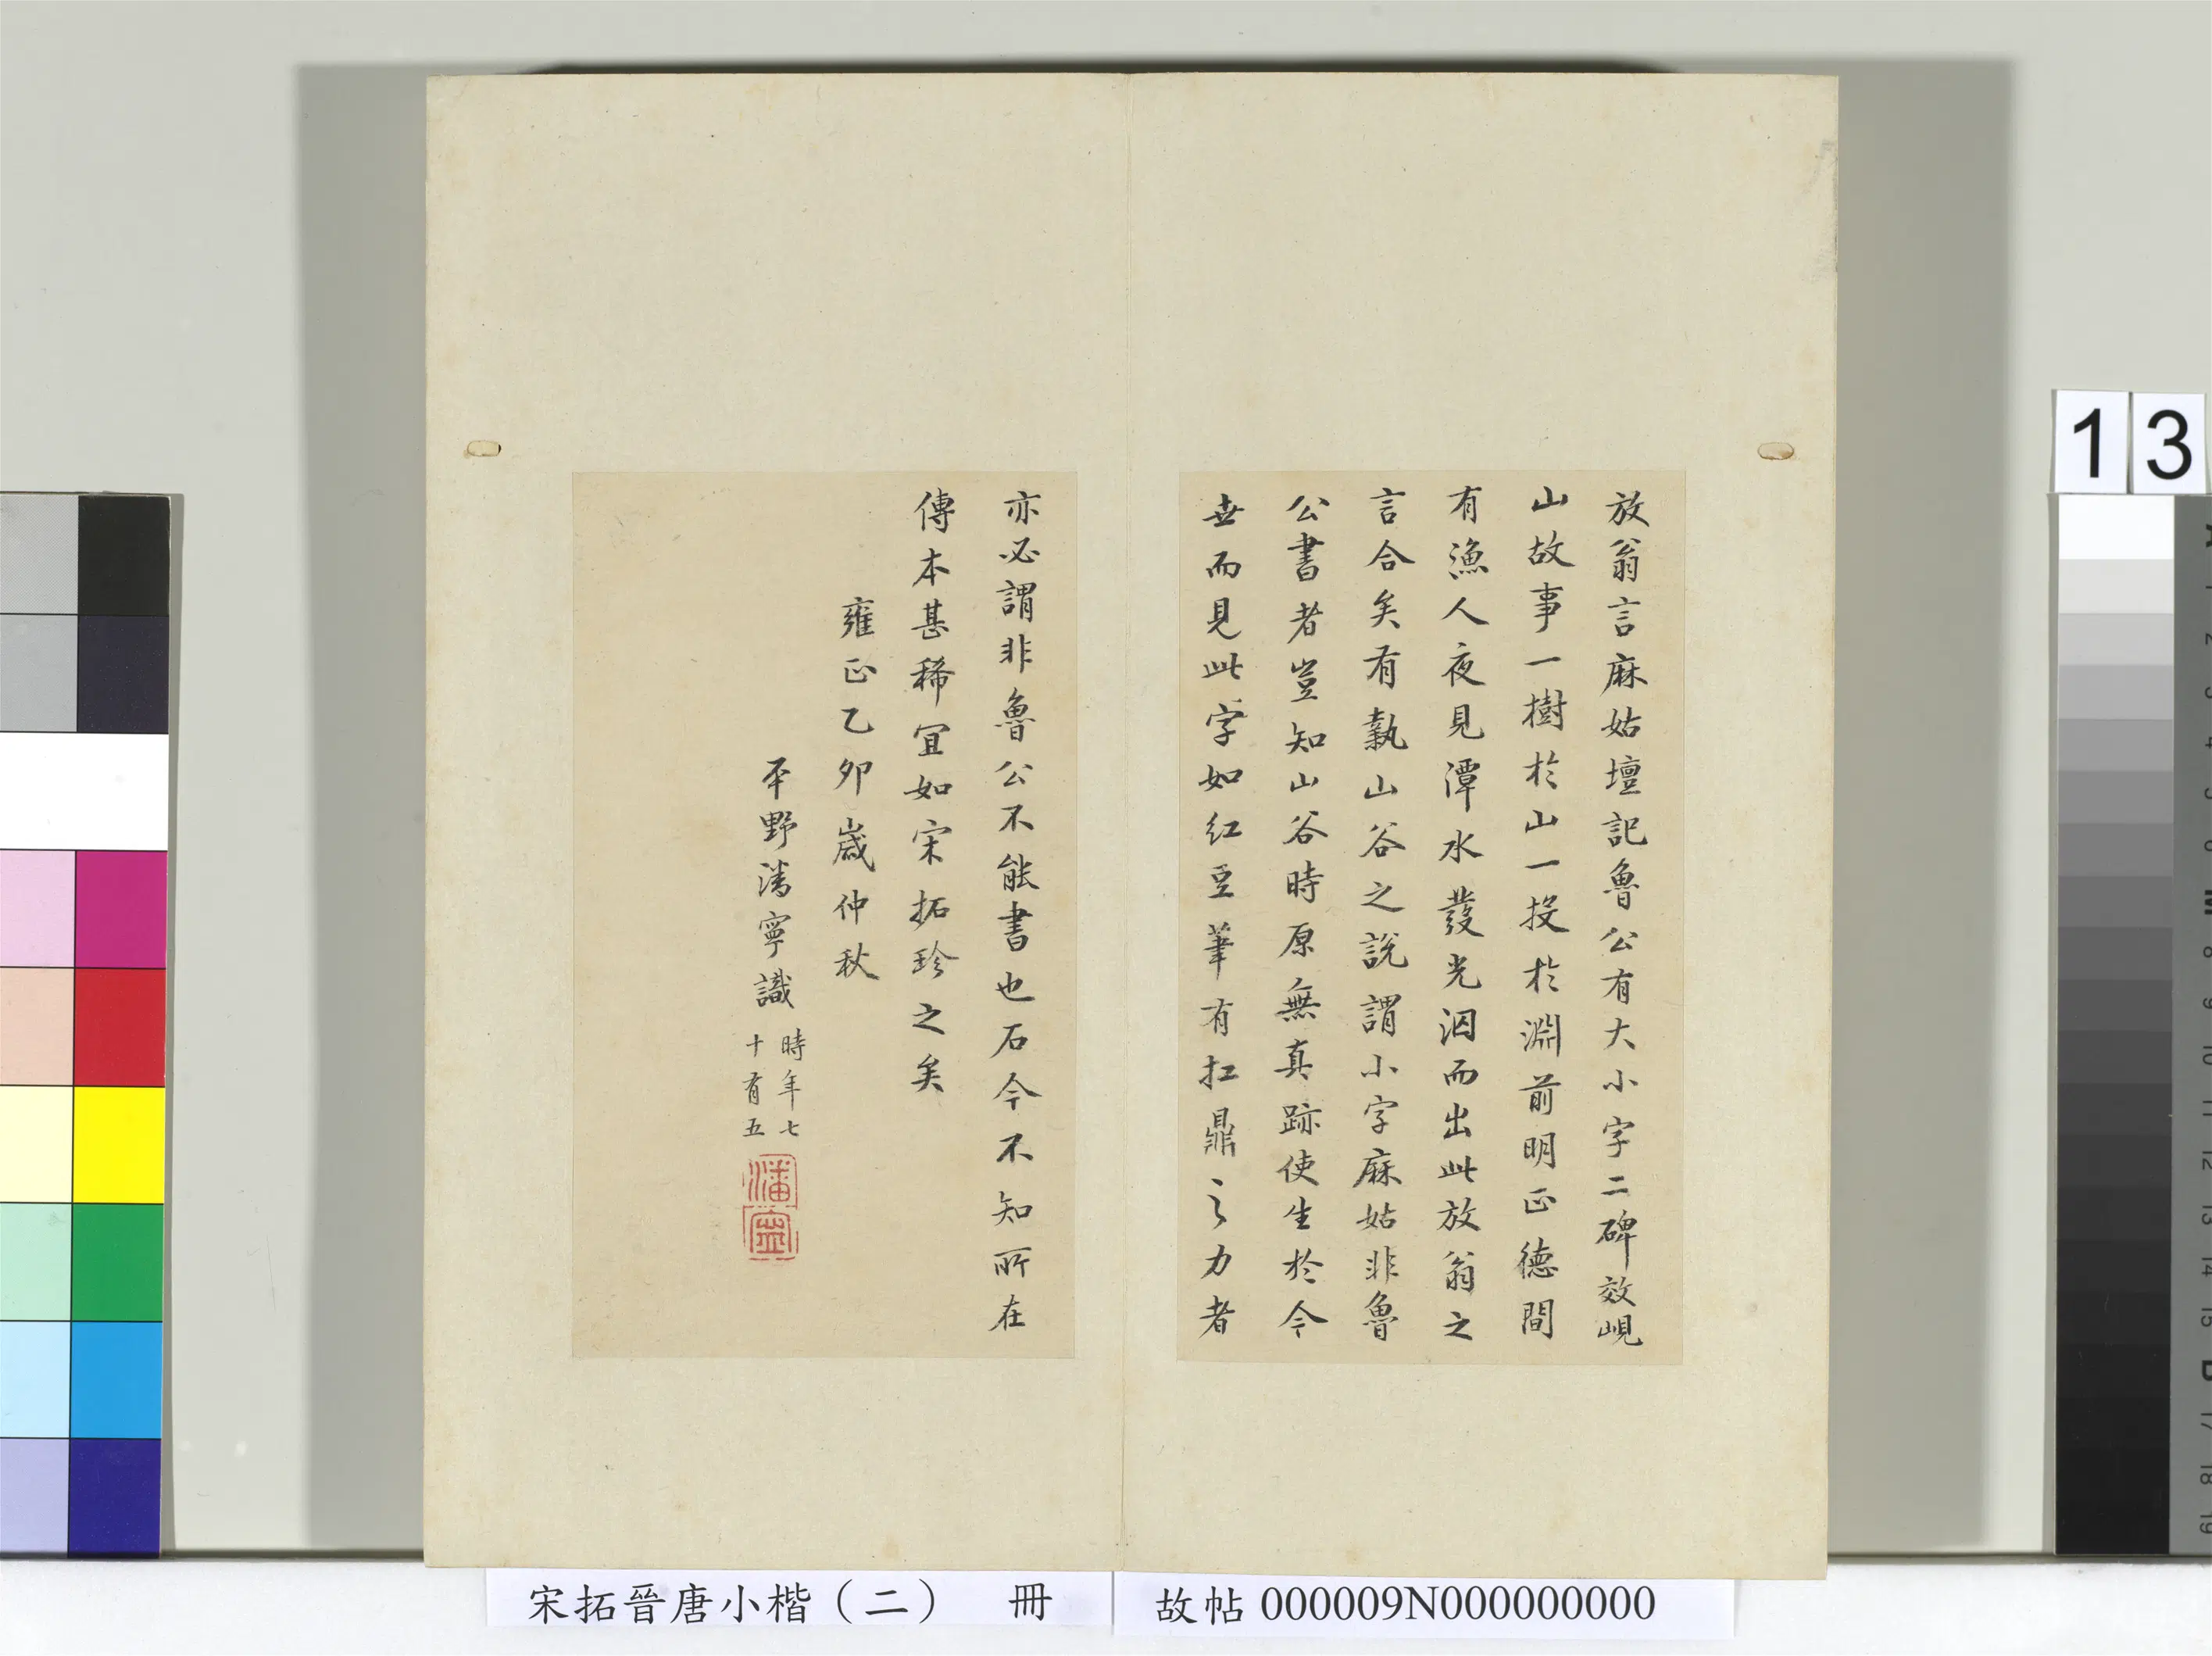 放翁言麻姑壇記魯公有大小字二碑效峴
山故事一樹於山一投於淵前明正德間
有漁人夜見潭水發光泅而出此放翁之
言合矣有執山谷之說謂小字麻姑非魯
公書者豈知山谷時原無真跡使生於今
世而見此字如紅豆筆有扛鼎之力者
亦必謂非魯公不能書也石今不知所在
傳本甚稀宜如宋拓珍之矣
雍正乙卯歲仲秋
平野潘寧識
時年七
十有五
潘
寧
13
宋拓晉唐小楷（二） 冊
故帖 000009N000000000